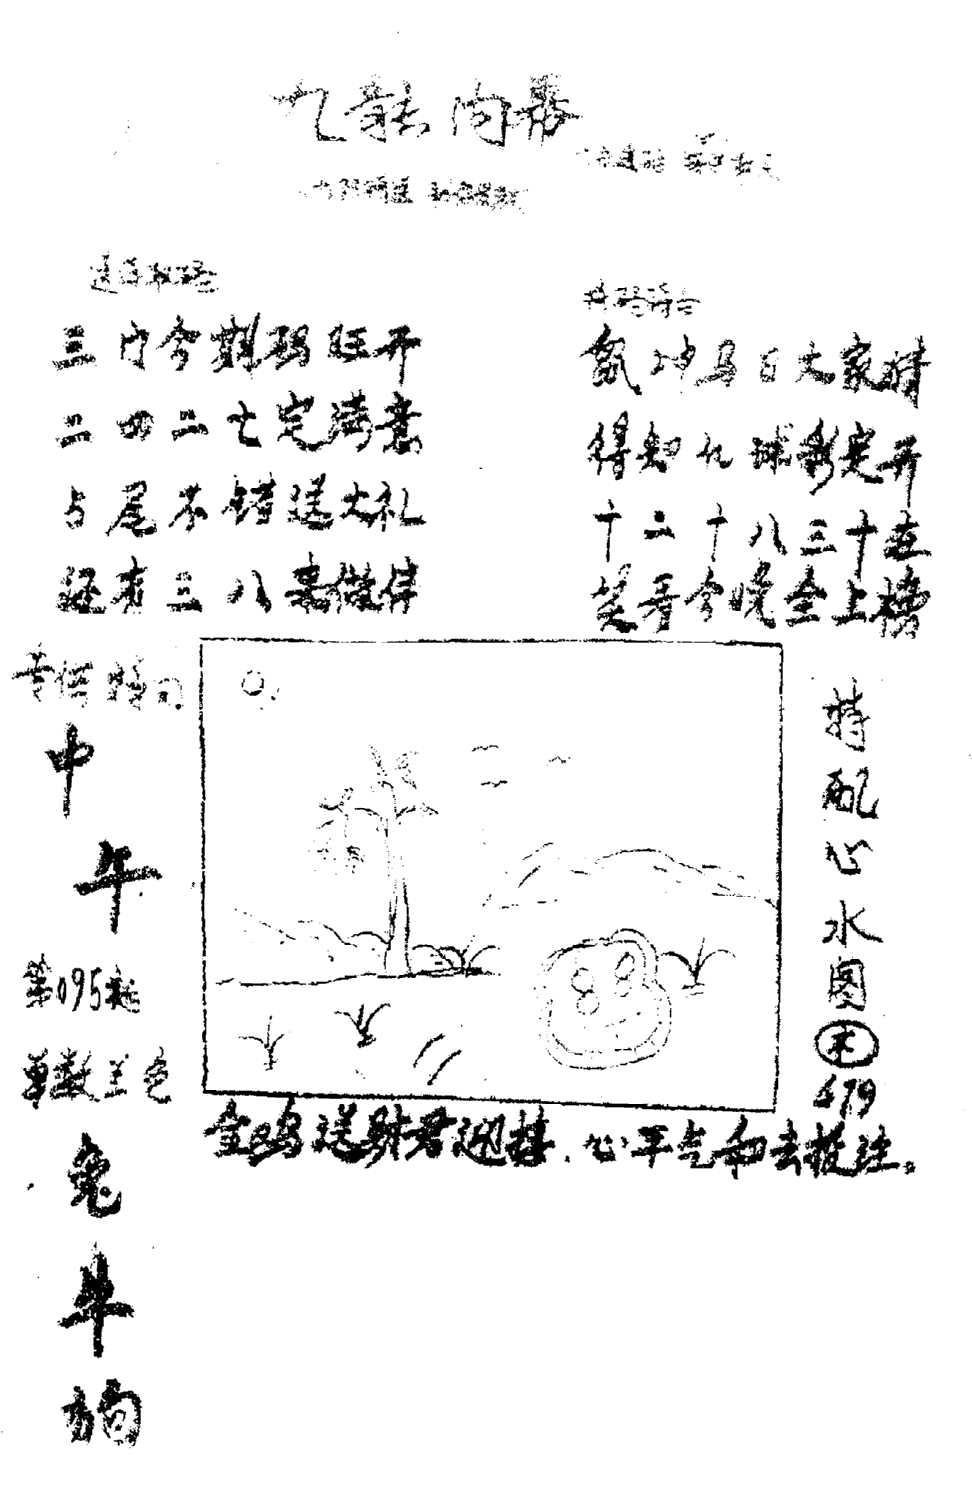 九龙内幕
三门今期码旺开
二四二七定满意
占尾不错送大礼
还有三八来做伴
特码诗
鼠冲马日大家猜
得知化球彩定开
十二十八三十在
笑看今晚全上榜
中
午
第095期
单数兰色
兔
牛
狗
特配心水图
479
金鸡送财君迎接.心平气和去投注。